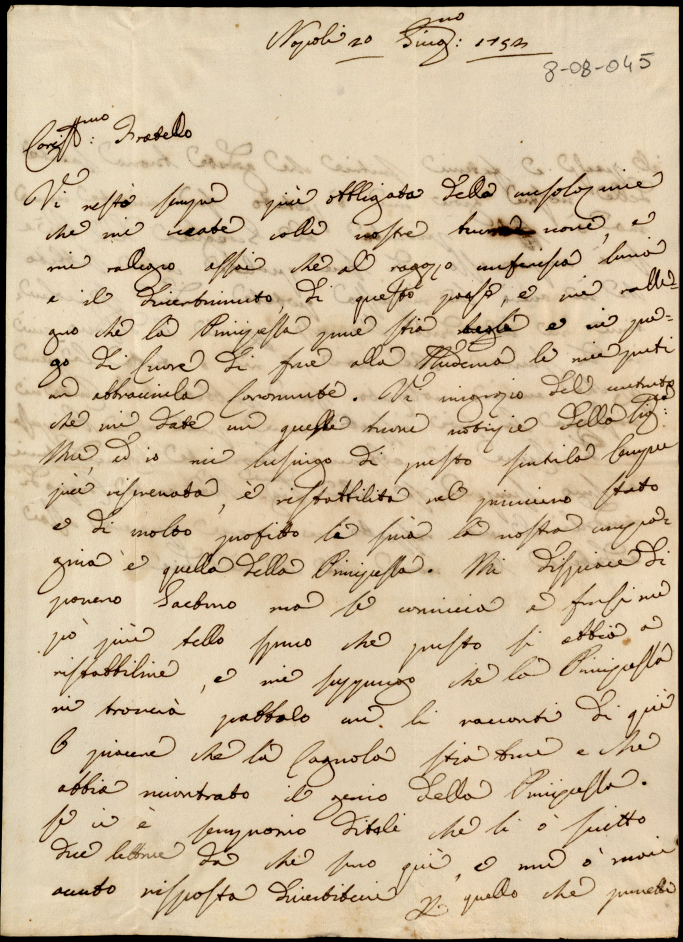 Napoli 20 Giug:no 1792
8-08-045
Cariss:mo Fratello
Vi resto sempre più obbligata della consolazione
che mi date colle vostre buone nove, e
mi rallegro assai che al ragazzo conferisca l'aria
e il divertimento di questo paese, e mi ralle=
gro che la Principessa pure stia bene e vi pre=
go di Cuore di fare alla Medema le mie parti
con abbracciarla Caramente. Vi ringrazio del contento
che mi date con quelle buone notizie della Sig:ra
Me, ed io mi lusingo di presto sentirla sempre
più rasserenata, è ristabbilita nel primiero stato
e di molto profitto le sarà la vostra compa=
gnia è quella della Principessa. Mi dispiace di
povero Gaetano ma se comincia a farsi un
pò più bello spero che presto si abbia a
ristabbilire, e mi suppongo che la Principessa
ci troverà pabbolo con li racconti di quì
ò piacere che la Cagnola stia bene e che
abbia incontrato il genio della Principessa.
Se vi è Sempronio diteli che li ò scritto
due lettere da che sono quì, e non ò mai
avuto risposta Divertitevi Per quello che potete